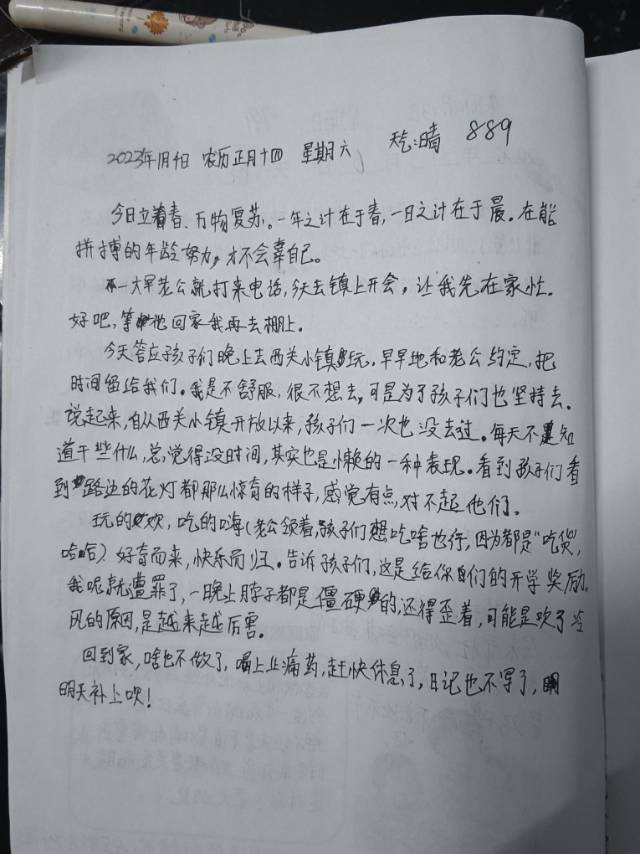 2023年1月4日 农历正月十四 星期六 天气:晴 889
今日立春、万物复苏。一年之计在于春,一日之计在于晨。在能
拼搏的年龄努力,才不会辜自己。
一大早老公就打来电话,今天去镇上开会,让我先在家忙。
好吧,等他回家我再去棚上.
今天答应孩子们晚上去西关小镇玩.早早地和老公约定,把
时间留给我们。我是不舒服,很不想去,可是为了孩子们也坚持去.
说起来,自从西关小镇开放以来,孩子们一次也没去过。每天不知
道干些什么,总觉得没时间,其实也是懒的一种表现。看到孩子们看
到路边的花灯都那么惊奇的样子,感觉有点对不起他们。
玩的欢,吃的嗨(老公领着,孩子们想吃啥也行,因为都是“吃货”,
哈哈)好奇而来,快乐而归。告诉孩子们,这是给你们的开学奖励,
我呢就遭罪了,一晚上脖子都是僵硬的,还得歪着,可能是吹了
风的原因,是越来越厉害。
回到家,啥也不做了,喝上止痛药,赶快休息了,日记也不写了,
明天补上吹!